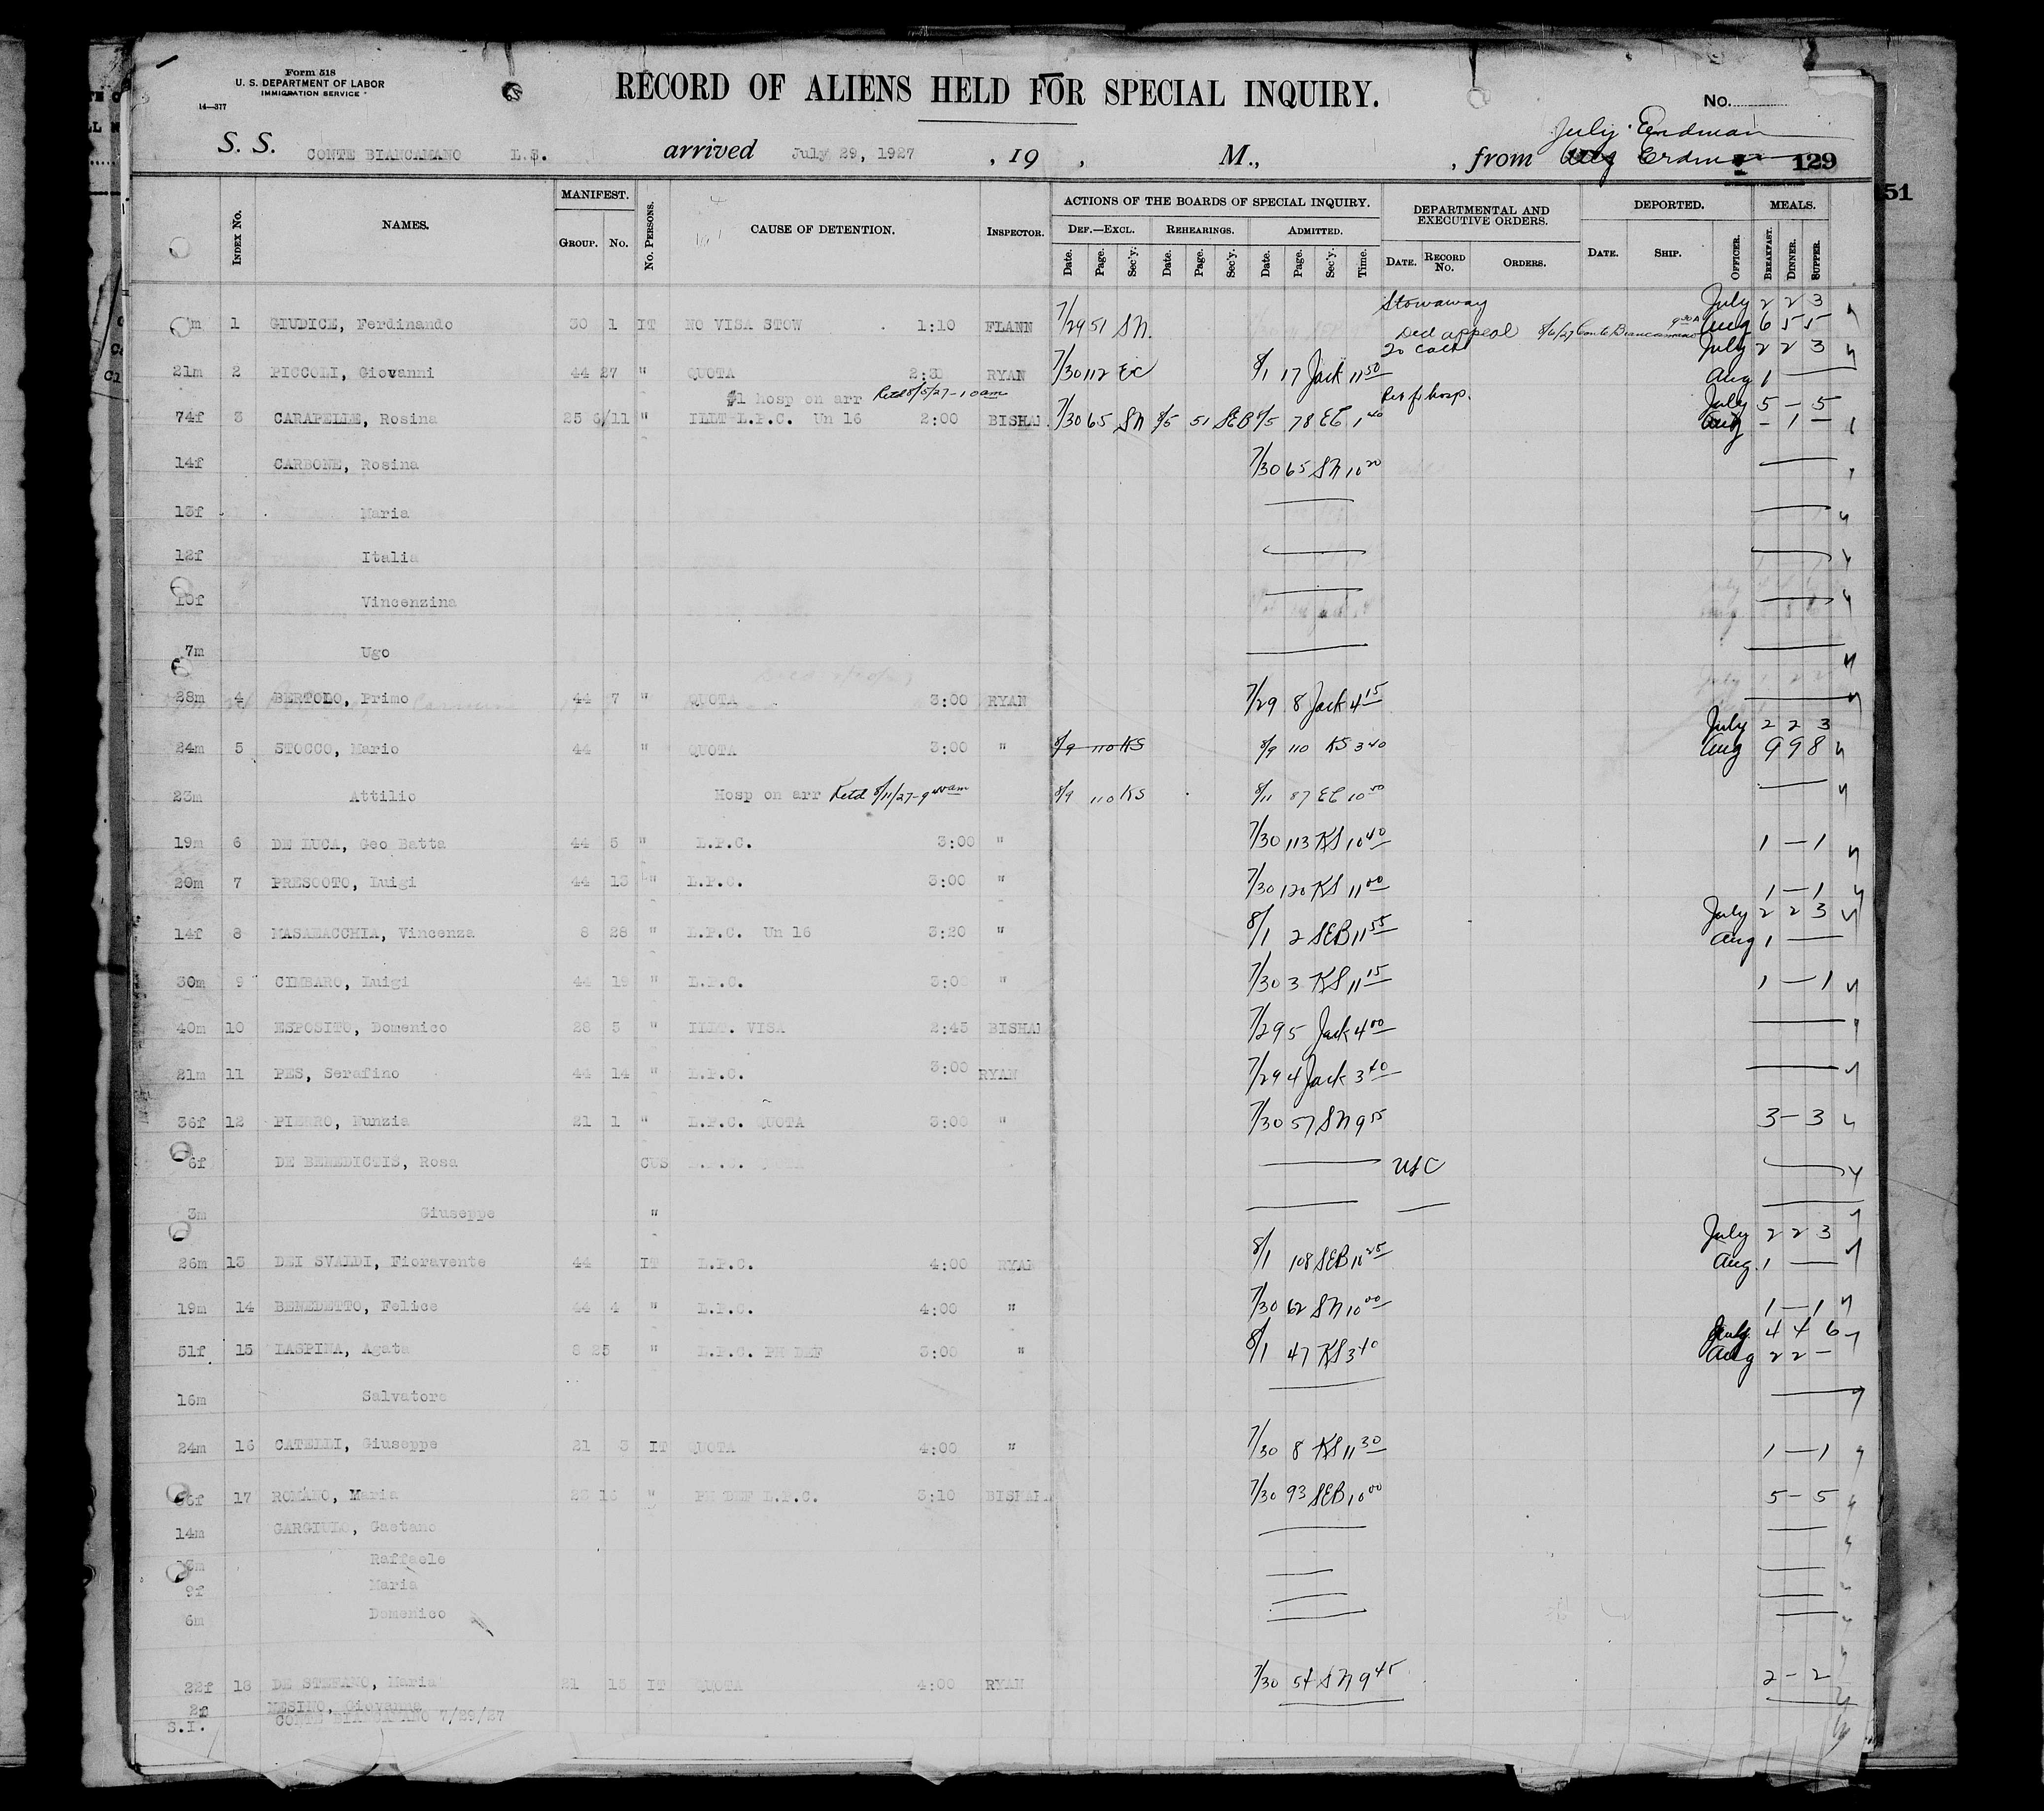 Form 518
U. S. DEPARTMENT OF LABOR
IMMIGRATION SERVICE
14—377
RECORD OF ALIENS HELD FOR SPECIAL INQUIRY.
No.
July Erdman
S. S. CONTE BIANCAMANO L.S. arrived July 29, 1927 , 19 , M., , from Aug Erdman 129
51
INDEX NO. NAMES. MANIFEST. GROUP. NO. NO. PERSONS. CAUSE OF DETENTION. INSPECTOR. ACTIONS OF THE BOARDS OF SPECIAL INQUIRY. DEPARTMENTAL AND EXECUTIVE ORDERS. DEPORTED. MEALS.
DEF.—EXCL. REHEARINGS. ADMITTED.
Date. Page. Sec'y. Date. Page. Sec'y. Date. Page. Sec'y. Time. DATE. RECORD NO. ORDERS. DATE. SHIP. OFFICER. BREAKFAST. DINNER. SUPPER.
Stowaway July 2 2 3
m 1 GIUDICE, Ferdinando 30 1 IT NO VISA STOW 1:10 FLANN 7/29 51 SN. Ded appeal 8/6/27 Conte Biancamano Aug 6 5 5
July 2 2 3
21m 2 PICCOLI, Giovanni 44 27 " QUOTA RYAN 7/30 112 EC 8/1 17 Jack 11 50 Aug 1 —
#1 hosp on arr Retd 8/5/27-10am July 5 — 5
74f 3 CARAPELLE, Rosina 25 6/11 " ILLT L.P.C. Un 16 2:00 BISHA 7/30 65 SN 8/5 51 SEB 8/5 78 EC 1 40 Aug — 1 —
14f CARBONE, Rosina 7/30 65 SN 10 20
13f Maria
12f Italia
10f Vincenzina
7m Ugo
28m 4 BERTOLO, Primo 44 7 " QUOTA 3:00 RYAN 7/29 8 Jack 4 15
July 2 2 3
24m 5 STOCCO, Mario 44 " QUOTA 3:00 " 8/9 110 KS 8/9 110 KS 3 40 Aug 9 9 8
23m Attilio Hosp on arr Retd 8/11/27-9 00 am 8/9 110 KS 8/11 87 EC 10 00
19m 6 DE LUCA, Geo Batta 44 5 " L.P.C. 3:00 " 7/30 113 KS 10 40 1 — 1
20m 7 PRESCOTO, Luigi 44 13 " L.P.C. 3:00 " 7/30 120 KS 11 00 1 — 1
July 2 2 3
14f 8 MASARACCHIA, Vincenza 8 28 " L.P.C. Un 16 3:20 " 8/1 2 SEB 11 55 Aug 1 —
30m 9 CIMBARO, Luigi 44 19 " L.P.C. 3:00 " 7/30 3 KS 11 15 1 — 1
40m 10 ESPOSITO, Domenico 28 5 " ILLT. VISA 2:45 BISHA 7/29 5 Jack 4 00
21m 11 PES, Serafino 44 14 " L.P.C. 3:00 RYAN 7/29 4 Jack 3 40
36f 12 PIERRO, Nunzia 21 1 " L.P.C. QUOTA 3:00 " 7/30 57 SN 9 55 3 — 3
6f DE BENEDICTIS, Rosa CUS USC
3m Giuseppe "
July 2 2 3
26m 13 DEI SVALDI, Fioravente 44 IT L.P.C. 4:00 RYAN 8/1 108 SEB 10 25 Aug. 1 —
19m 14 BENEDETTO, Felice 44 4 " L.P.C. 4:00 " 7/30 62 SN 10 00 1 — 1
July 4 4 6
51f 15 LASPINA, Agata 8 25 " L.P.C. PH DEF 3:00 " 8/1 47 KS 3 40 Aug 2 2 —
16m Salvatore
24m 16 CATELLI, Giuseppe 21 3 IT QUOTA 4:00 " 7/30 8 KS 11 30 1 — 1
17 ROMANO, Maria 16 " PH DEF L.P.C. 3:10 BISHA 7/30 93 SEB 10 00 5 — 5
14m GARGIULO, Gaetano
Raffaele
9f Maria
6m Domenico
22f 18 DE STEFANO, Maria 21 IT QUOTA 4:00 RYAN 7/30 54 SN 9 45 2 — 2
2f MESINO, Giovanna
S.I. CONTE BIANCAMANO 7/29/27